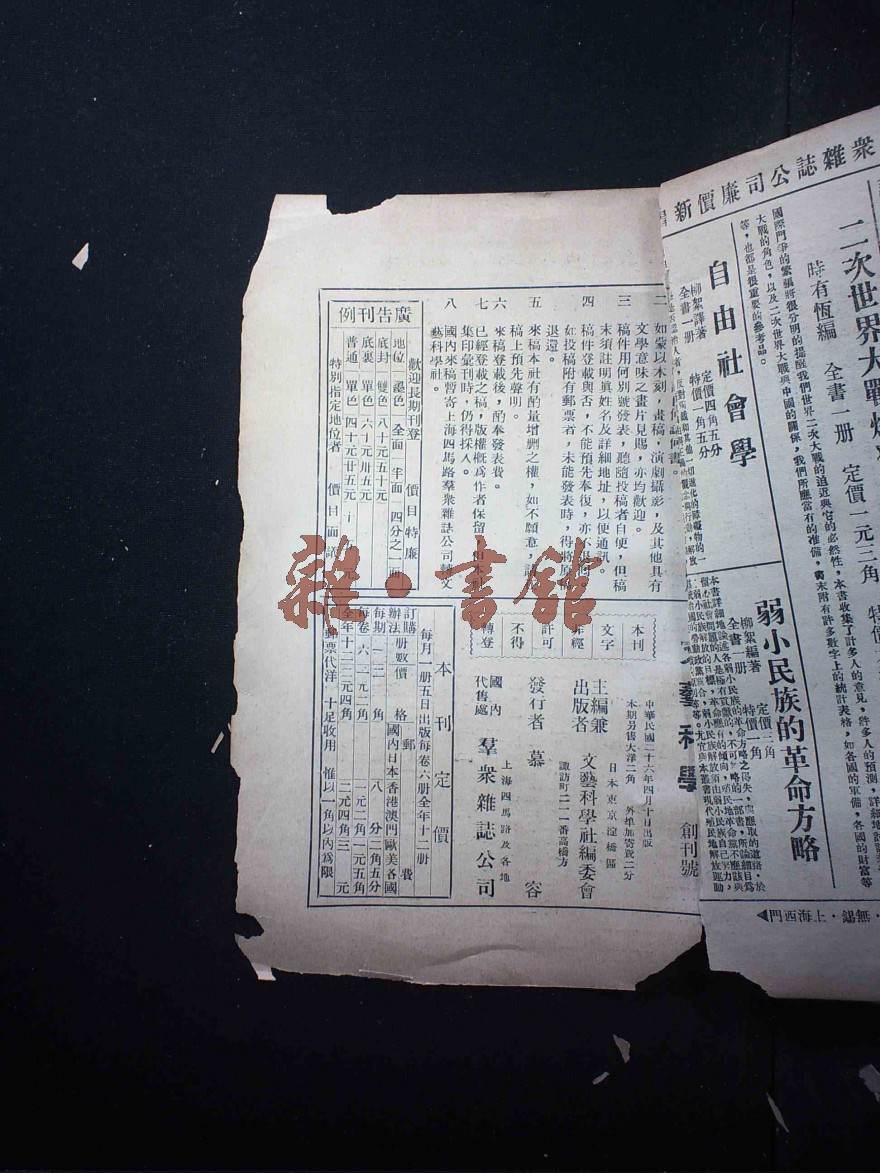 衆雜誌公司廉價新
二次世界大戰
時有恆編　全書一册　定價一元三角
國際鬥爭的緊張將很分明的提醒我們世界二次大戰的迫近與它的必然性，本書收集了許多人的意見，許多人的預測，詳細地
大戰的角色，以及二次世界大戰與中國的關係，我們所應當有的准備，書末附有許多數字上的統計表格，如各國的軍備，各國的財富等
等，也都是很重要的參考品。
自由社會學
柳絮譯著　定價四角五分
全書一册　特價一角五分
弱小民族的革命方略
柳絮編著　定價一角
全書一册　特價一角
無錫·上海西門
二　如蒙以木刻，畫稿，演劇攝影，及其他具有
文學意味之畫片見賜，亦均歡迎。
三　稿件用何別號發表，聽隨投稿者自便，但稿
末須註明眞姓名及詳細地址，以便通訊
四　稿件登載與否，不能預先奉復，亦不退回
如投稿附有郵票者，未能發表時，得將原稿
退還。
五　來稿本社有酌量增删之權，如不願意，請
稿上預先聲明。
六　來稿登載後，酌奉發表費。
七　已經登載之稿，版權概爲作者保留，但本社
集印彙刊時，仍得採人。
八　國內來稿暫寄上海四馬路羣衆雜誌公司轉文
藝科學社。
廣告刊例
歡迎長期刊登　價目特廉
地位　墨色　全面　半面　四分之一面
底封　雙色　八十元　五十元
底裏　單色　六十元　卅五元
普通　單色　四十元　廿五元　十
特別指定地位者　價目面議
本刊
文字
非經
許可
不得
轉登
文藝科學　創刊號
中華民國二十六年四月十日出版
本期另售大洋二角　外埠加寄費二分
主編兼出版者　文藝科學社編委會
日本東京淀橋區
諏訪町二一一番高橋方
發行者　慕容
國內代售處　羣衆雜誌公司
上海四馬路及各地
本刊定價
每月一册五日出版每卷六册全年十二册
訂購辦法　册數　價格　郵費
國內日本　香港澳門　歐美各國
每期　一　二角　八分　二角五分
每卷　六　一元二角　一元二角　一元五角
全年　十二　二元四角　二元四角　三元
郵票代洋　十足收用　惟以一角以內爲限
雜·書館